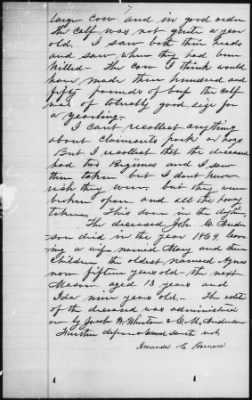 7
large cow and in good order
the calf was not quite a year
old. I saw both their heads
and saw when they had been
killed. The cow I think would
have made three hundred and
fifty pounds of beef the calf
was of tolerably good size for
a yearling.
I cant recollect anything
about claimants pork or hogs
But I recollect that the deceased
had two Beegums and I saw
them taken but I dont know
rich they were. but they were
broken open and all the honey
taken. This done in the daytime
The deceased John C. Ander
son died in the year 1869. leav
ing a wife named Mary and three
Children the oldest named Agnes
now fifteen years old. the next
Mason aged 13 years and
Ida nine years old. The estate
of the deceased was administered
on by Jacob W. Whirton & C. M. Anderson
Further deponent saith not
Amanda C.